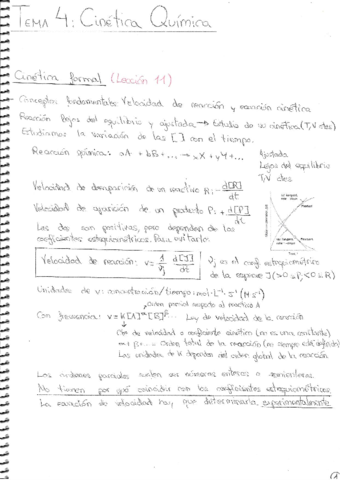 TEMA 4: Cinética Química
Cinética formal (Lección 11)
→ Conceptos fundamentales: Velocidad de reacción y ecuación cinética
Reacción lejos del equilibrio y ajustada → Estudio de su cinética (T,V ctes)
Estudiamos la variación de las [ ] con el tiempo.
Reacción química: aA + bB + ... → xX + yY + ...
Ajustada
Lejos del equilibrio
T,V ctes
Velocidad de desaparición de un reactivo R: - d[R]/dt
Velocidad de aparición de un producto P: + d[P]/dt
Las dos son positivas, pero dependen de los
coeficientes estequiométricos. Para evitarlo:
Velocidad de reacción: v = 1/νj d[J]/dt
νj es el coef. estequiométrico
de la especie J (>0 ≡ P; <0 ≡ R)
Unidades de v: concentración/tiempo: mol·L⁻¹·s⁻¹ (M s⁻¹)
Orden parcial respecto al reactivo A
Con frecuencia: v = k[A]^α[B]^β... Ley de velocidad de la reacción
Cte de velocidad o coeficiente cinético (no es una constante)
Orden total de la reacción (no siempre está definido)
Las unidades de k dependen del orden global de la reacción
Los órdenes parciales suelen ser números enteros o semienteros.
No tienen por qué coincidir con los coeficientes estequiométricos.
La ecuación de velocidad hay que determinarla experimentalmente